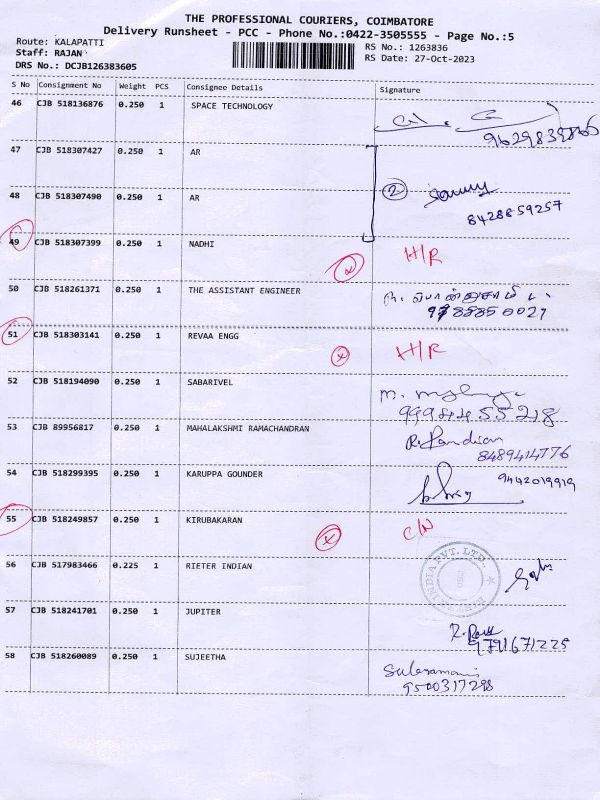 THE PROFESSIONAL COURIERS, COIMBATORE
Delivery Runsheet - PCC - Phone No.:0422-3505555 - Page No.:5
Route: KALAPATTI
RS No.: 1263836
Staff: RAJAN
RS Date: 27-Oct-2023
DRS No.: DCJB126383605
S No Consignment No Weight PCS Consignee Details Signature
46 CJB 518136876 0.250 1 SPACE TECHNOLOGY
9629839865
47 CJB 518307427 0.250 1 AR
48 CJB 518307490 0.250 1 AR 2
8428859257
49 CJB 518307399 0.250 1 NADHI H/R
50 CJB 518261371 0.250 1 THE ASSISTANT ENGINEER
51 CJB 518303141 0.250 1 REVAA ENGG H/R
52 CJB 518194090 0.250 1 SABARIVEL
9994455218
53 CJB 89956817 0.250 1 MAHALAKSHMI RAMACHANDRAN R. Pandian
8489414776
54 CJB 518299395 0.250 1 KARUPPA GOUNDER 9442019919
55 CJB 518249857 0.250 1 KIRUBAKARAN C/N
56 CJB 517983466 0.225 1 RIETER INDIAN
INDIA PVT. LTD.
57 CJB 518241701 0.250 1 JUPITER
9791671225
58 CJB 518260089 0.250 1 SUJEETHA
9500317298